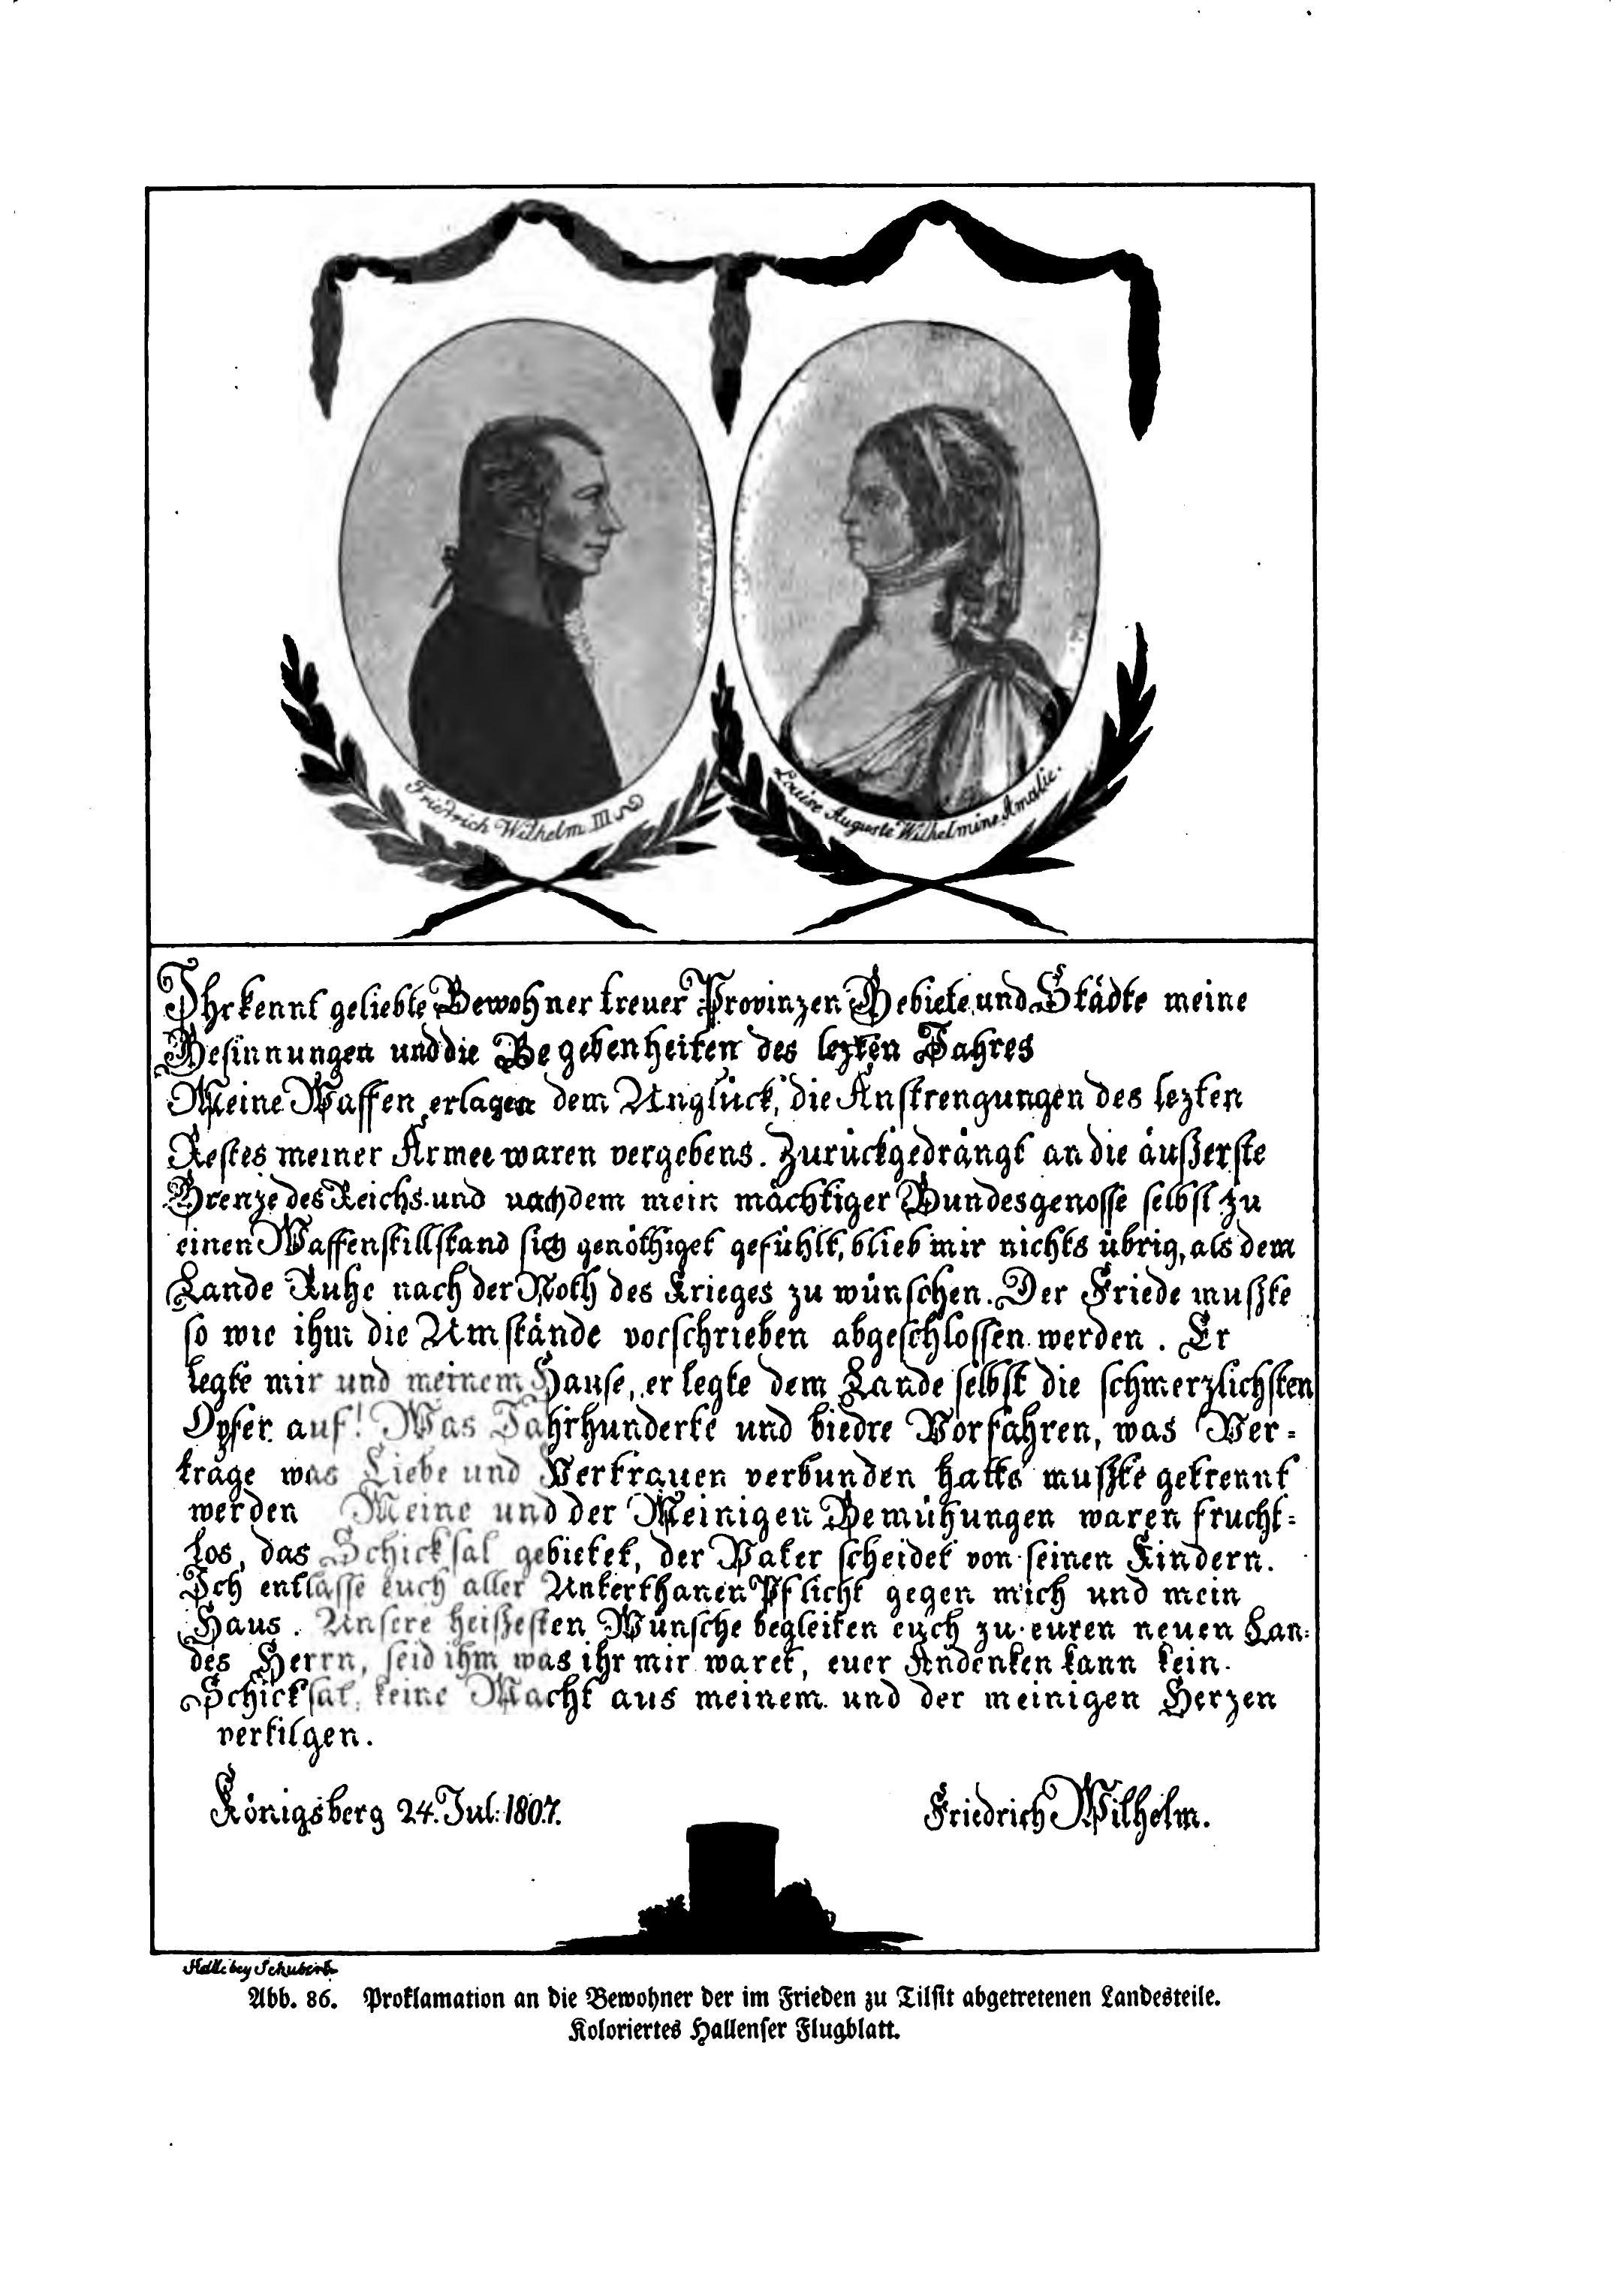 Friedrich Wilhelm III
Louise Auguste Wilhelmine Amalie.
Ihr kennt geliebte Bewohner treuer Provinzen Gebiete und Städte meine
Gesinnungen und die Begebenheiten des lezten Jahres
Meine Waffen erlagen dem Unglück, die Anstrengungen des lezten
Restes meiner Armee waren vergebens. Zurückgedrängt an die äußerste
Grenze des Reichs und nachdem mein mächtiger Bundesgenosse selbst zu
einen Waffenstillstand sich genöthiget gefühlt, blieb mir nichts übrig, als dem
Lande Ruhe nach der Noth des Krieges zu wünschen. Der Friede mußte
so wie ihm die Umstände vorschrieben abgeschlossen werden. Er
legte mir und meinem Hause, er legte dem Lande selbst die schmerzlichsten
Opfer auf! Was Jahrhunderte und biedre Vorfahren, was Ver=
träge was Liebe und Vertrauen verbunden hatte mußte getrennt
werden Meine und der Meinigen Bemühungen waren frucht=
los, das Schicksal gebietet, der Vater scheidet von seinen Kindern.
Ich entlasse euch aller Unterthanen Pflicht gegen mich und mein
Haus. Unsere heißesten Wünsche begleiten euch zu euren neuen Lan=
des Herrn, seid ihm was ihr mir waret, euer Andenken kann kein
Schicksal, keine Macht aus meinem und der meinigen Herzen
vertilgen.
Königsberg 24. Jul: 1807.
Friedrich Wilhelm.
Halle bey Schubert
Abb. 86. Proklamation an die Bewohner der im Frieden zu Tilsit abgetretenen Landesteile.
Koloriertes Hallenser Flugblatt.